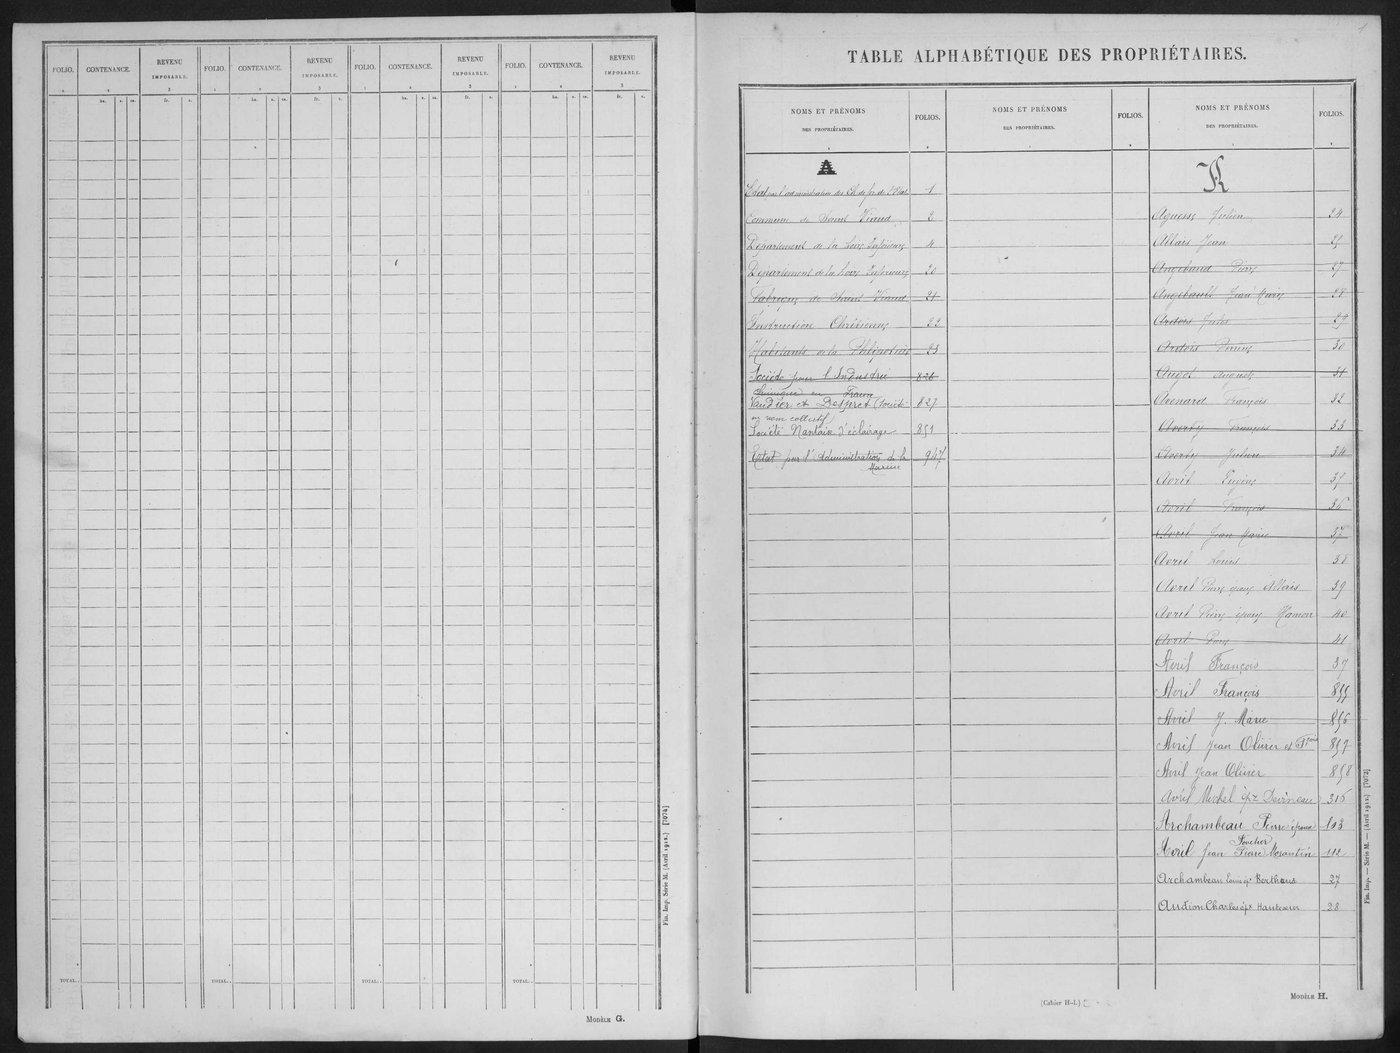 FOLIO. CONTENANCE. REVENU IMPOSABLE. FOLIO. CONTENANCE. REVENU IMPOSABLE. FOLIO. CONTENANCE. REVENU IMPOSABLE. FOLIO. CONTENANCE. REVENU IMPOSABLE.
1 2 3 1 2 3 1 2 3 1 2 3
ha. a. ca. fr. c. ha. a. ca. fr. c. ha. a. ca. fr. c. ha. a. ca. fr. c.
TOTAL. TOTAL. TOTAL. TOTAL.
Fin. Imp. Série M. (Avril 1912.) [7074]
MODÈLE G.
1
TABLE ALPHABÉTIQUE DES PROPRIÉTAIRES.
NOMS ET PRÉNOMS DES PROPRIÉTAIRES. FOLIOS. NOMS ET PRÉNOMS DES PROPRIÉTAIRES. FOLIOS. NOMS ET PRÉNOMS DES PROPRIÉTAIRES. FOLIOS.
A
Etat par l'administration des Ch. de fer de l'Etat 1
Commune de Saint Viaud 2
Département de la Loire Inférieure 4
Département de la Loire Inférieure 20
Fabrique de Saint Viaud 21
Instruction Chrétienne 22
Habitants de la 23
Société pour l'Industrie 826
Chimique en France
Vaudier et Despret (Société 827
en nom collectif
Société Nantaise d'éclairage 851
Etat par l'Administration de la 947
Marine
Aguesse Julien 24
Allais Jean 25
Angebaud Pierre 27
Angebault Jean Marie 28
Ardois Jules 29
Ardois Pierre 30
Augot Auguste 31
Avenard François 32
Averty François 33
Averty Julien 34
Avril Eugène 35
Avril François 36
Avril Jean Marie 37
Avril Louis 38
Avril Pierre époux Allais 39
Avril Pierre époux Hamon 40
Avril Pierre 41
Avril François 37
Avril François 855
Avril J. Marie 856
Avril Jean Olivier et Fçois 857
Avril Jean Olivier 858
Avril Michel épx Devineau 316
Archambeau Pierre époux 103
Foucher
Avril Jean Pierre Morantin 112
Archambeau Louis ép. Berthaus 27
Audion Charles épx 28
Fin. Imp. — Série M. — (Avril 1912) [7072]
(Cahier H-L)
MODÈLE H.